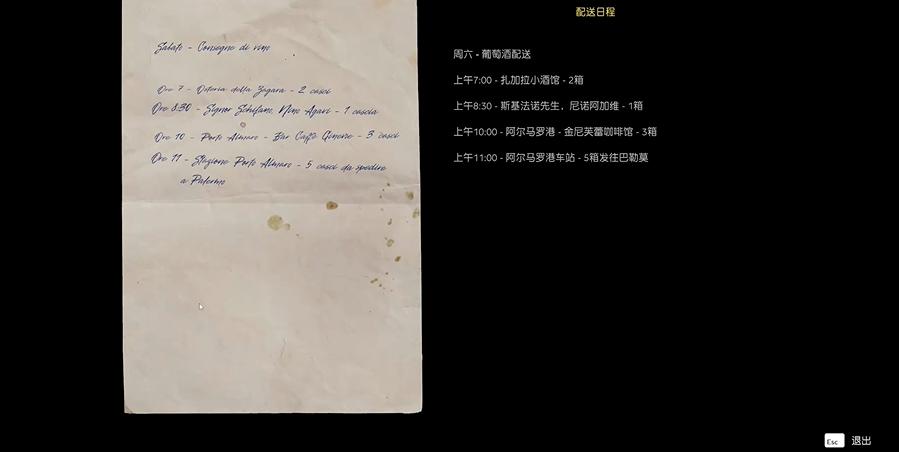 Sabato - Consegne di vino
Ore 7 - Osteria della Zagara - 2 casse
Ore 8:30 - Signor Schifano, Nino Agavi - 1 cassa
Ore 10 - Porto Almaro - Bar Caffè Ginone - 3 casse
Ore 11 - Stazione Porto Almaro - 5 casse da spedire
a Palermo
配送日程
周六 - 葡萄酒配送
上午7:00 - 扎加拉小酒馆 - 2箱
上午8:30 - 斯基法诺先生，尼诺阿加维 - 1箱
上午10:00 - 阿尔马罗港 - 金尼芙蕾咖啡馆 - 3箱
上午11:00 - 阿尔马罗港车站 - 5箱发往巴勒莫
Esc 退出